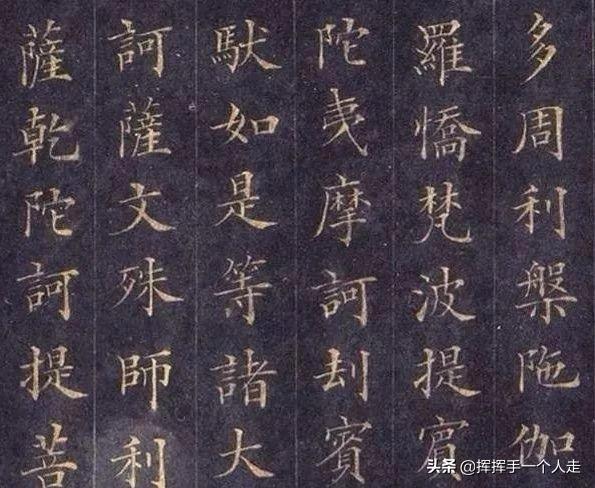 多周利槃陁伽
羅憍梵波提賔
陀夷摩訶刦賓
馱如是等諸大
訶薩文殊師利
薩乾陀訶提菩
头条 @挥挥手一个人走